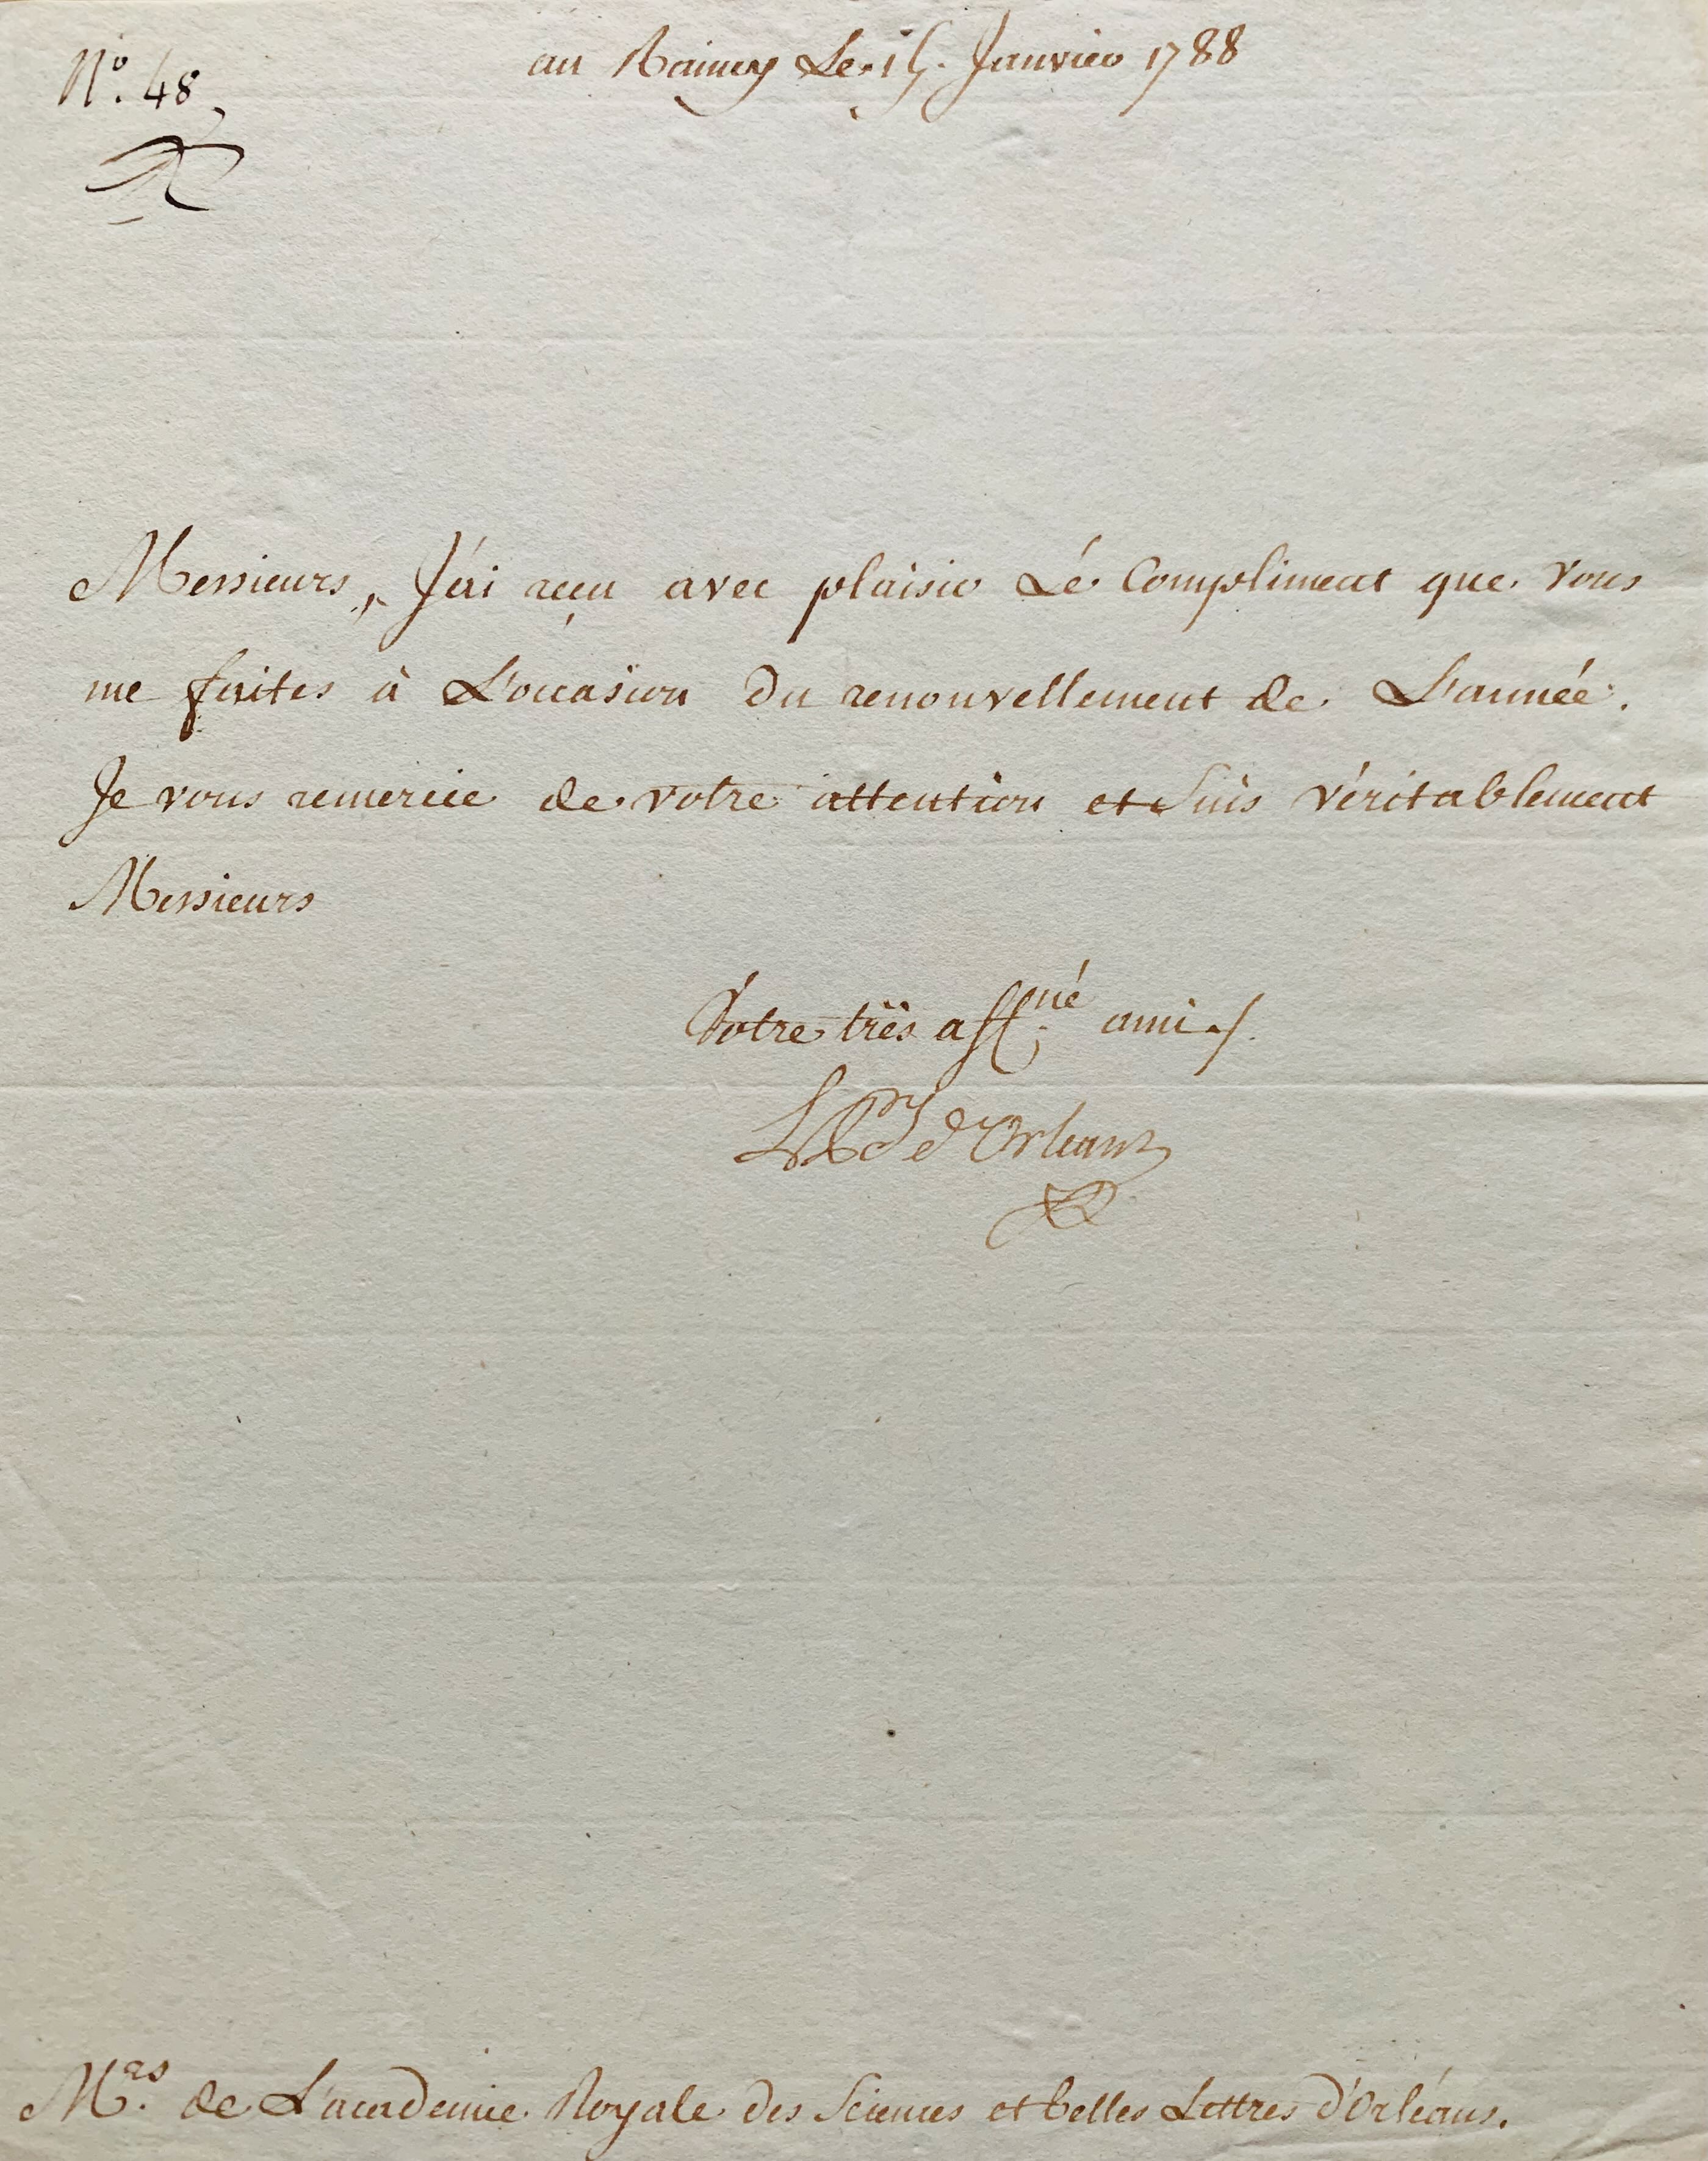 N.º 48
au Rainey Le 15. Janvier 1788
Messieurs, J'ai reçu avec plaisir Lé Compliment que vous
me faites à L'occasion du renouvellement de L'année.
Je vous remercie de votre attention et suis véritablement
Messieurs
Votre très aff.né ami /.
d'Orleans
M.rs de L'academie Royale des Sciences et belles Lettres d'Orléans.